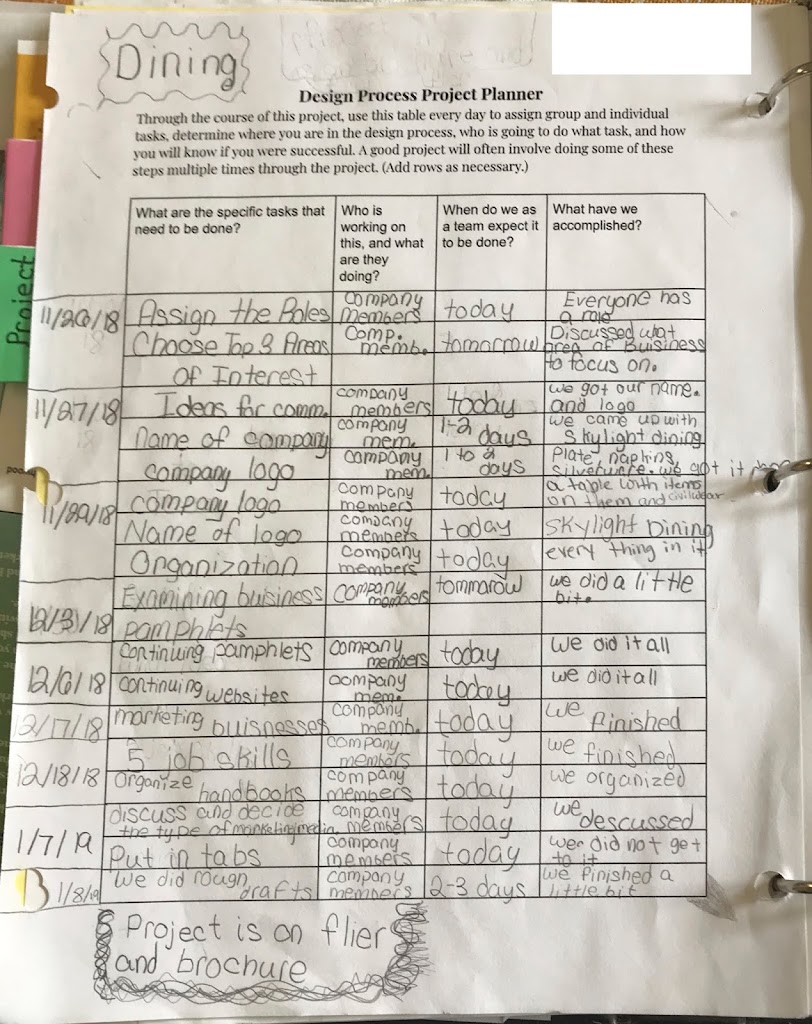 Dining
Design Process Project Planner
Through the course of this project, use this table every day to assign group and individual
tasks, determine where you are in the design process, who is going to do what task, and how
you will know if you were successful. A good project will often involve doing some of these
steps multiple times through the project. (Add rows as necessary.)
What are the specific tasks that
need to be done?
Who is
working on
this, and what
are they
doing?
When do we as
a team expect it
to be done?
What have we
accomplished?
Project
11/26/18
Assign the Roles
Company
members
today
Everyone has
a role
Choose Top 3 Areas
of Interest
Comp.
memb.
tomarrow
Discussed wat
area of Buisiness
to focus on.
11/27/18
Ideas for comm.
company
members
today
we got our name.
and logo
Name of company
company
mem.
1-2
days
we came up with
Skylight dining
company logo
company
mem.
1 to 2
days
Plate, napking,
we got it
11/29/18
company logo
company
members
today
a table with items
on them and
Name of logo
company
members
today
Skylight Dining
Organization
company
members
today
every thing in it
12/3/18
Examining buisness
pamphlets
company
members
tommarow
we did a little
bit.
12/6/18
Continuing pamphlets
company
members
today
we did it all
continuing websites
company
mem.
today
we did it all
12/17/18
marketing buisnesses
company
memb.
today
we finished
12/18/18
5 job skills
company
members
today
we finished
Organize handbooks
company
members
today
we organized
1/7/19
discuss and decide
the type of marketing media
company
members
today
we descussed
Put in tabs
company
members
today
wer did not get
to it
B 1/8/19
we did rough
drafts
company
members
2-3 days
we finished a
little bit
Project is on flier
and brochure